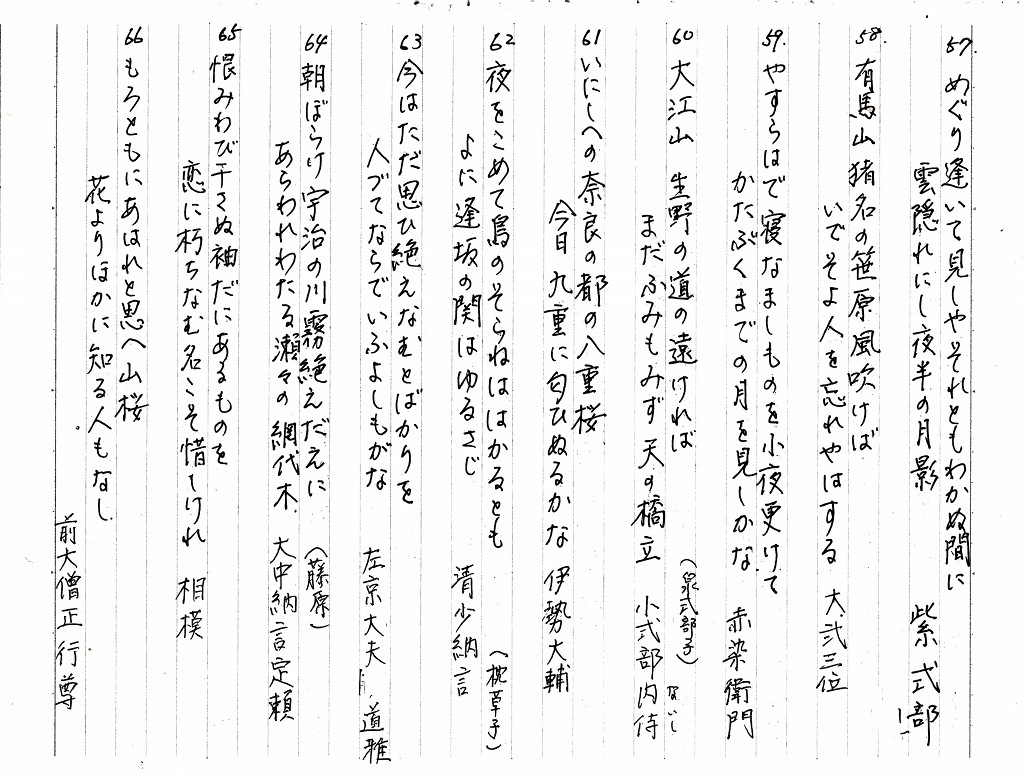 57 めぐり逢いて見しやそれともわかぬ間に
雲隠れにし夜半の月影 紫式部
58 有馬山猪名の笹原風吹けば
いでそよ人を忘れやはする 大弐三位
59. やすらはで寝なましものを小夜更けて
かたぶくまでの月を見しかな 赤染衛門
60 大江山 生野の道の遠ければ (泉式部子)
まだふみもみず 天の橋立 小式部内侍 ないし
61 いにしへの奈良の都の八重桜
今日九重に匂ひぬるかな 伊勢大輔
62 夜をこめて鳥のそらねははかるとも (枕草子)
よに逢坂の関はゆるさじ 清少納言
63 今はただ思ひ絶えなむとばかりを
人づてならでいふよしもがな 左京大夫 道雅
64 朝ぼらけ宇治の川霧絶えだえに (藤原)
あらわれわたる瀬々の網代木 大中納言定頼
65 恨みわび干さぬ袖だにあるものを
恋に朽ちなむ名こそ惜しけれ 相模
66 もろともにあはれと思へ山桜
花よりほかに知る人もなし
前大僧正行尊